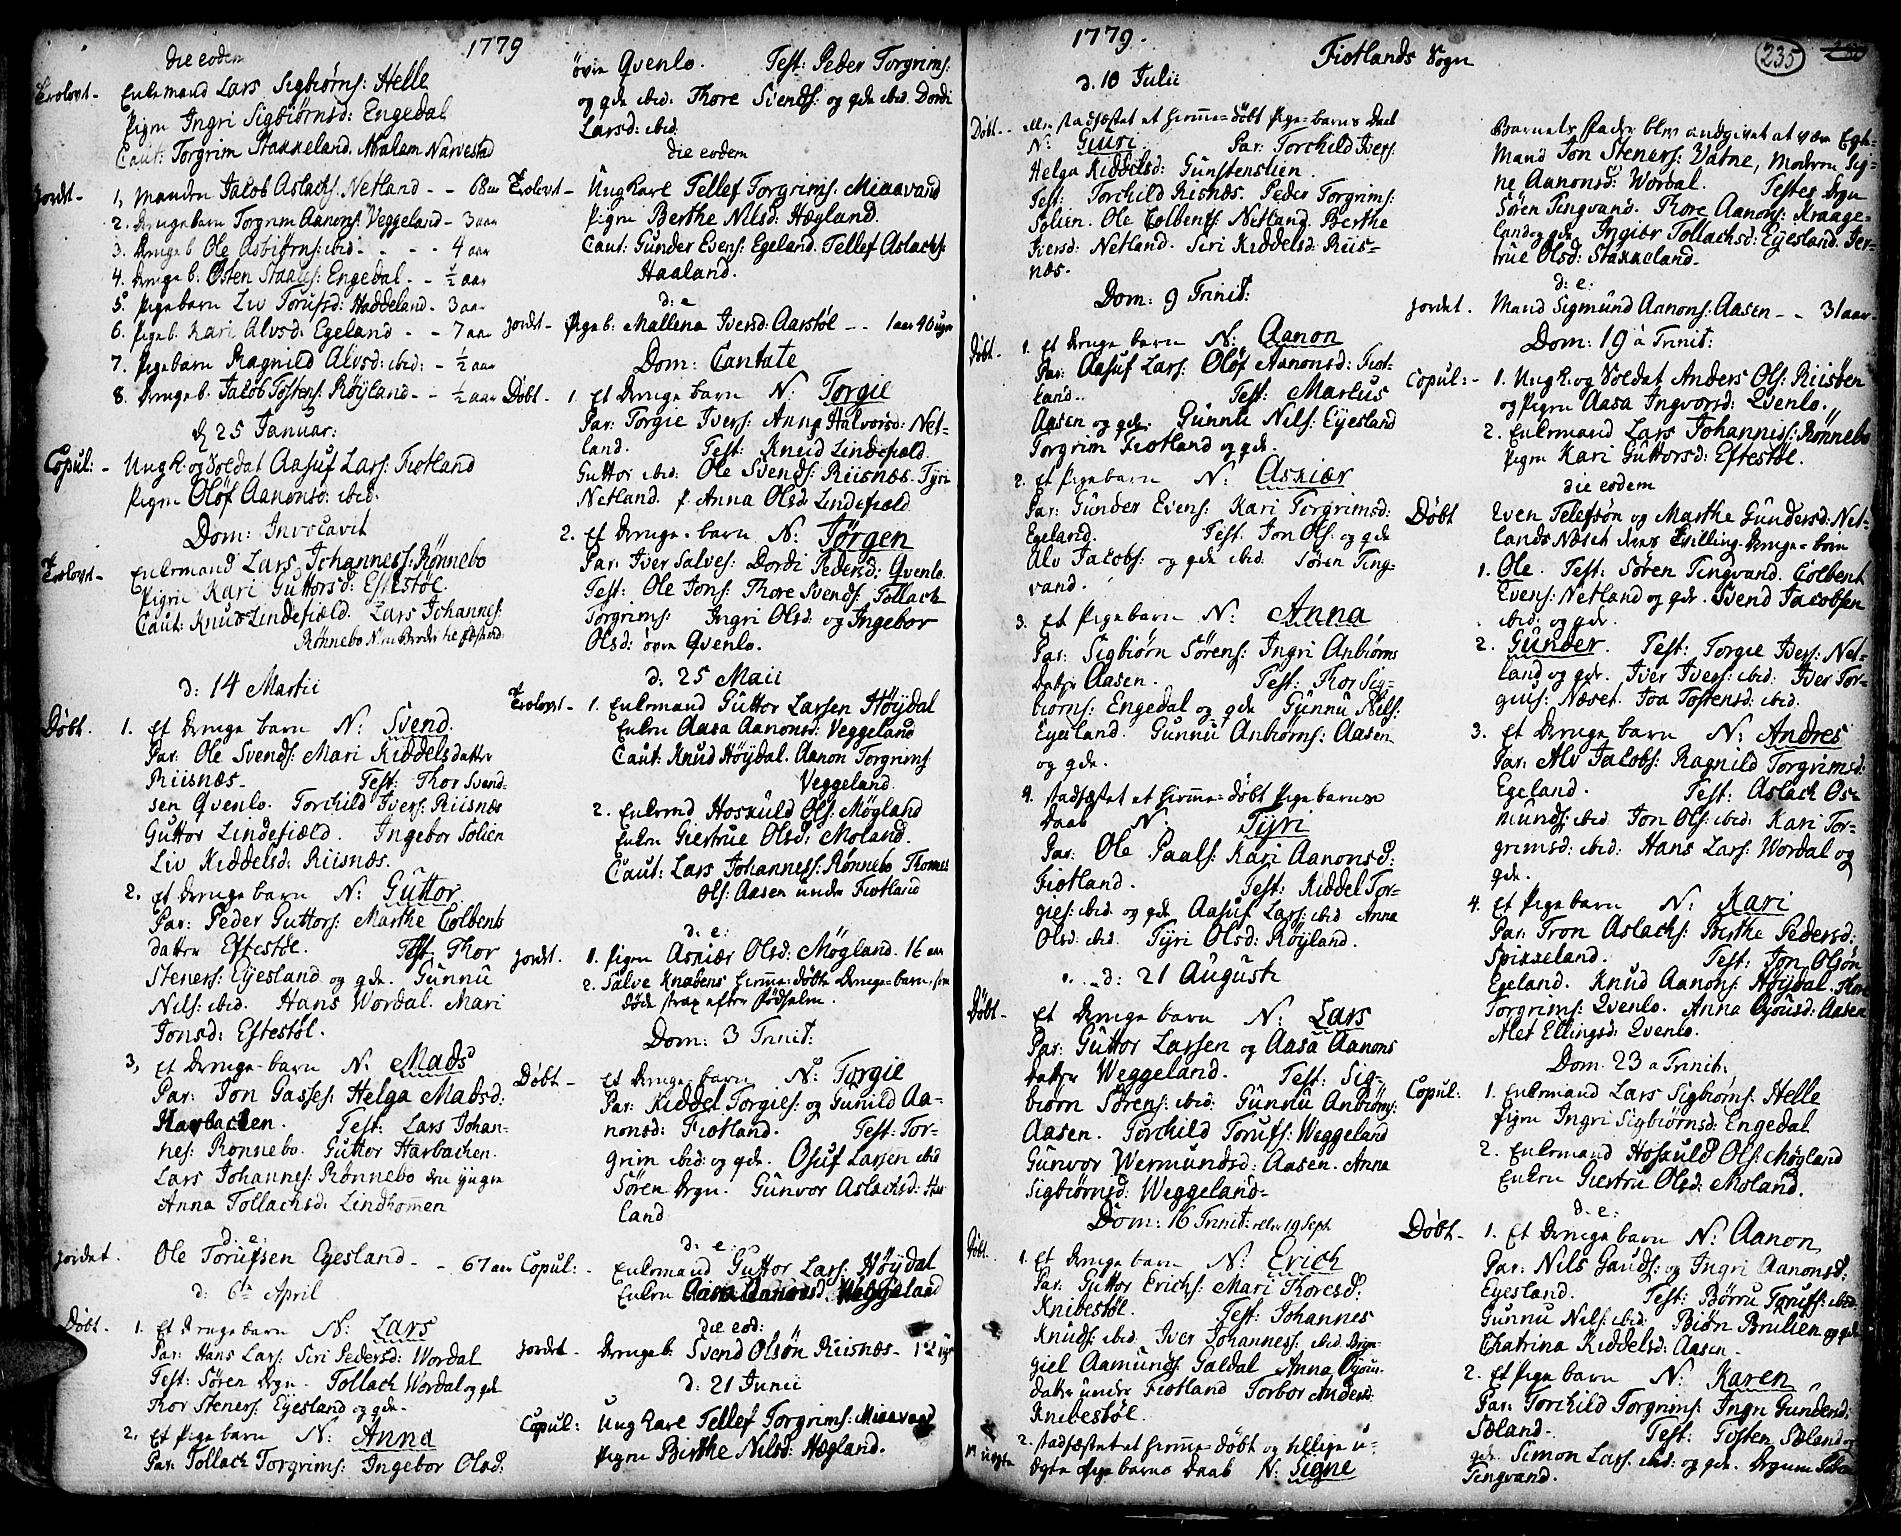 1779
die eodem
Trolovt- Enkemand Lars Sigbiørns: Helle
Pigen Ingri Sigbiørnsd: Engedal
Caut: Torgrim Stakkeland. Abraham Narvestad
Jordt- 1, Manden Jacob Aslachs: Netland - - 68 aar
2. Drengebarn Torgrim Aanons: Veggeland - 3 aar
3. Drengeb Ole Asbiørns: ibid - - - 4 aar
4. Drengeb: Østen Staals: Engedal - - ½ aar
5. Pigebarn Liv Torufsd: Haddeland - 3 aar
6. Pigeb. Kari Alvsd: Egeland - - 7 aar
7. Pigebarn Ragnild Alvsd: ibid: - ½ aar
8. Drengeb. Jacob Tostens: Røyland - - ½ aar
d 25 Januar:
Copul: - Ung K. og Soldat Aasuf Lars: Fiotland
Pigen Oløf Aanonsd: ibid.
Dom: Invocavit
Trolovt- Enkemand Lars Johanness: Rønnebo
Pigen Kari Guttorsd: Eftestøl
Caut: Knud Lindefiæld. Lars Johannes:
Rønnebo
d: 14 Martii
Døbt. 1. Et Drenge barn N: Svend
Par: Ole Svends: Mari Kiddelsdatter
Riisnæs- Test: Thor Svend-
sen Qvenlo. Torchild Ivers: Riisnæs
Guttor Lindefiæld. Ingebor Solien
Liv Kiddelsd: Riisnæs.
2. Et Drenge barn N: Guttor
Par: Peder Guttors: Marthe Colbents
datter Eftestøl. Test: Thor
Steners: Eyesland og qde. Gunnu
Nils: ibid. Hans Wordal. Mari
Jonsd: Eftestøl.
3, Et Drenge-barn N: Mads
Par: Jon Gasses: Helga Madsd:
Harbacken. Test: Lars Johan-
nes: Rønnebo. Guttor Harbacken.
Lars Johannes: Rønnebo den yngre
Anna Tollachsd: Lindhommen
d: e:
Jordet. Ole Torufsen Eyesland - - 67 aar
d: 6te April
Døbt. 1. Et Drengebarn N: Lars
Par: Hans Lars: Siri Pedersd: Wordal
Test: Søren Degn. Tollach Wordal og qde
Thor Steners: Eyesland og qde.
2. Et Pige barn N: Anna
Par: Tollach Torgrims: Ingebor Olsd:
øvre Qvenlo. Test: Peder Torgrims:
og qde ibid. Thore Svends: og qde ibid. Dordi
Larsd: ibid.
die eodem
Trolovt- Ung Karl Tellef Torgrims: Miaavand
Pigen Berthe Nilsd: Hægland.
Caut: Gunder Evens: Egeland. Tellef Aslachs:
Haaland.
d: e
Jordt- Pigeb: Mallena Iversd: Aarstøl - - 1 aar 40 uger
Dom: Cantate
Døbt. 1. Et Drenge barn N: Torgie
Par: Torgie Ivers: Anna Halvorsd: Net-
land. Test: Knud Lindefiæld.
Guttor ibid: Ole Svends: Riisnæs. Tyri
Netland. p Anna Olsd Lindefiæld
2. Et Drenge-barn N: Jørgen
Par: Iver Salves: Dordi Pedersd: Qvenlo.
Test: Ole Jons: Thore Svends: Tollach
Torgrims: Ingri Olsd: og Ingebor
Olsd: øvre Qvenlo.
d. 25 Maii
Trolovt- 1. Enkemand Guttor Larsen Høydal
Enken Aasa Aanonsd: Veggeland
Caut: Knud Høydal. Aanon Torgrims
Veggeland.
2. Enkemd Hoskuld Ols: Møgland
Enken Giertrue Olsd: Moland.
Caut: Lars Johannes: Rønnebo Thomes
Ols: Aasen under Fiotland
d: e:
Jordt. 1. Pigen Askiær Olsd: Møgland. 16 aar
2. Salve Knabens hiemme-døbte Drenge-barn, som
døde strax efter Fødselen.
Dom: 3 Trinit:
Døbt- Et Drenge-barn N: Torgie
Par: Kiddel Torgies: og Gunild Aa-
nonsd: Fiotland. Test: Tor-
grim ibid: og qde. Osuf Larsen ibid
Søren Degn. Gunvor Aslachsd: Haa
land
d: e:
Copul: - Enkemand Guttor Lars: Høydal
Enken Aasa Aanonsd: Weggeland
die eod:
Jordet- Drengeb: Svend Olsøn Riisnæs - 12 uger
d: 21 Junii
Copul: Ung Karl Tellef Torgrims: Miaavand
Pigen Birthe Nilsd: Hægland.
1779. Fiotlands Sogn 235
d. 10 Julii
Døbt- eller stadfæstet et hiemme-døbt Pige-barns Daab
N: Guri. Par: Torchild Ivers:
Helga Kiddelsd: Gunstenslien.
Test: Torchild Risnæs. Peder Torgrims:
Solien. Ole Colbents: Netland. Berthe
Iversd: Netland. Siri Kiddelsd: Riis-
næs.
Dom: 9 Trinit:
Døbt- 1. Et Drenge barn N: Aanon
Par: Aasuf Lars: Oløf Aanonsd: Fiot-
land. Test: Marcus
Aasen og qde. Gunnu Nils: Eyesland
Torgrim Fiotland og qde.
2. Et Pigebarn N: Askiær
Par: Gunder Evens: Kari Torgrimsd:
Egeland. Test: Jon Ols: og qde
Alv Jacobs: og qde ibid. Søren Ting-
vand.
3. Et Pigebarn N: Anna
Par: Sigbiørn Sørens: Ingri Anbiørns
datter Aasen. Test: Thor Sig-
biørns: Engedal og qde Gunnu Nils:
Eyesland. Gunnu Anbiørns: Aasen
og qde.
4. Stadfæstet et hiemme-døbt Pigebarns
Daab N: Tyri
Par: Ole Paals: Kari Aanonsd:
Fiotland. Test: Kiddel Tor-
gies: ibid og qde Aasuf Lars: ibid Anna
Olsd: ibid. Tyri Olsd: Røyland.
d: 21 Augusti
Døbt- Et Drenge barn N: Lars
Par: Guttor Larsen og Aasa Aanons
datter Weggeland. Test: Sig-
biørn Sørens: ibid: Gunnu Anbiørns:
Aasen. Torchild Torufs: Weggeland
Gunvor Wermundsd: Aasen. Anna
Sigbiørnsd: Weggeland-
Dom: 16 Trinit: eller 19 Sept.
Døbt. 1. Et Drenge barn N: Erich
Par: Guttor Erichs: Mari Thoresd:
Knibestøl. Test: Johannes
Knuds: ibid. Iver Johanness: ibid. Brin-
giel Aamunds: Galdal Anna Gjøus-
datter under Fiotland Torbor Andersd:
Knibestøl.
N uægte 2. Stadfæstet et hiemme-døbt og tillige u-
ægte Pige barns Daab N: Signe
Barnets Fader blev angivet at være Egte-
Mand Jon Steners: Vatne, Moderen Sig-
ne Aanonsd: Wordal. Testes Degn
Søren Tingvand. Thore Aanons: Kraage-
land og qde Ingiær Tollachsd: Eyesland. Jer-
true Olsd: Stakkeland.
d: e:
Jordet. Mand Sigmund Aanons: Aasen - - 31 aar.
Dom: 19 a Trinit:
Copul: - 1. Ung K. og Soldat Anders Ols: Riisøen
og Pigen Aasa Ingvorsd: Qvenlo.
2. Enkemand Lars Johanness: Rønnebo
Pigen Kari Guttorsd: Eftestøl.
die eodem
Døbt Even Telefsøn og Marthe Gundersd: Net-
lands Næset deres Tvilling-Drenge-børn
1. Ole. Test: Søren Tingvand. Colbent
Evens: Netland og qde. Svend Jacobsen
ibid: og qde.
2. Gunder. Test: Torgie Ivers: Net-
land og qde. Iver Ivers: ibid: Iver Tor-
gius: Næset. Joa Tostensd: ibid.
3. Et Drenge barn N: Andres
Par: Alv Jacobs: Ragnild Torgrimsd:
Egeland. Test: Aslach Os-
munds: ibid Jon Ols: ibid: Kari Tor-
grimsd: ibid: Hans Lars: Wordal og
qde.
4. Et Pige barn N: Kari
Par: Tron Aslachs: Birthe Pedersd:
Spikkeland. Test: Jon Olsøn
Egeland. Knud Aanons: Høydal. Thore
Torgrims: Qvenlo. Anna Gjøusd: Aasen
Alet Ellingsd: Qvenlo.
Dom: 23 a Trinit:
Copul: 1. Enkemand Lars Sigbiørns: Helle
Pigen Ingri Sigbiørnsd: Engedal
2. Enkemand Hoskuld Ols: Møgland
Enken Giertru Olsd: Moland.
d: e:
Døbt- 1. Et Drenge barn N: Aanon
Par: Nils Gauds: og Ingri Aanonsd:
Eyesland. Test: Børru Torufs: ibid.
Gunnu Nils: ibid: Biøn Brulien og qde
Chatrina Kiddelsd: Aasen.
2. Et Pige barn N: Karen
Par: Torchild Torgrims: Ingri Gundersd:
Sæland. Test: Tosten Sæland og
qde. Simon Lars: ibid: og qde. Degnen
Tingvand.